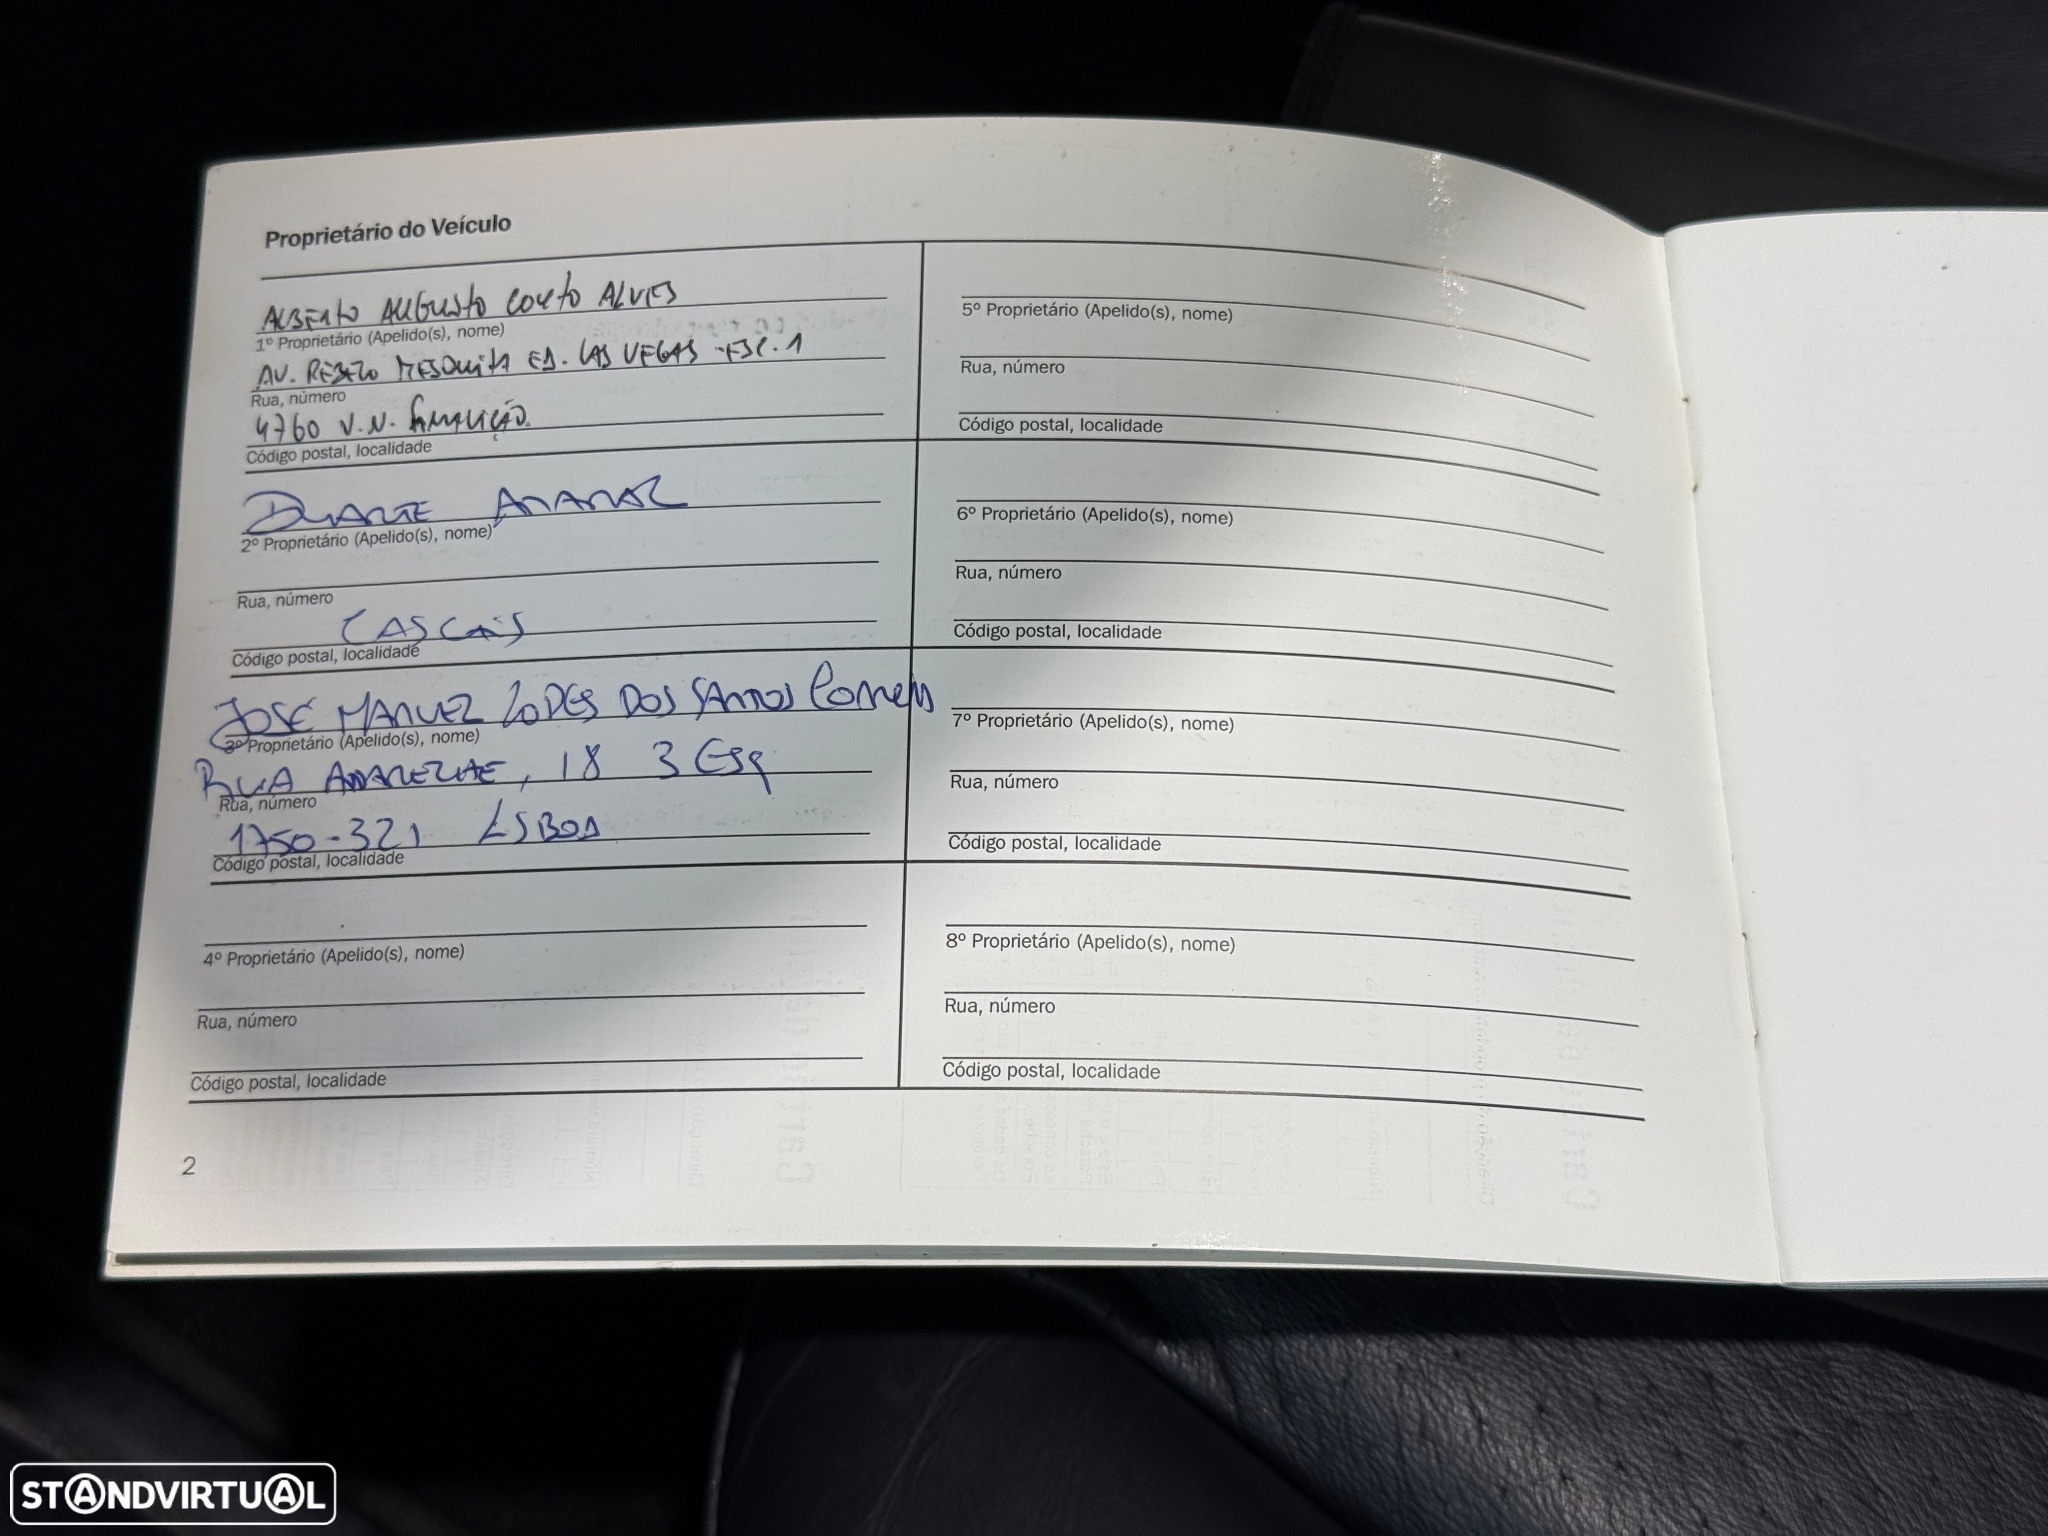 Proprietário do Veículo
ALBERTO AUGUSTO COUTO ALVES
1º Proprietário (Apelido(s), nome)
AV. REBELO MESQUITA ED. LAS VEGAS - 1
Rua, número
4760 V.N. FAMALICÃO
Código postal, localidade
DUARTE AMARAL
2º Proprietário (Apelido(s), nome)
Rua, número
CASCAIS
Código postal, localidade
JOSÉ MANUEL LOPES DOS SANTOS
3º Proprietário (Apelido(s), nome)
RUA , 18 3 Esq
Rua, número
1750-321 LISBOA
Código postal, localidade
4º Proprietário (Apelido(s), nome)
Rua, número
Código postal, localidade
5º Proprietário (Apelido(s), nome)
Rua, número
Código postal, localidade
6º Proprietário (Apelido(s), nome)
Rua, número
Código postal, localidade
7º Proprietário (Apelido(s), nome)
Rua, número
Código postal, localidade
8º Proprietário (Apelido(s), nome)
Rua, número
Código postal, localidade
2
STANDVIRTUAL